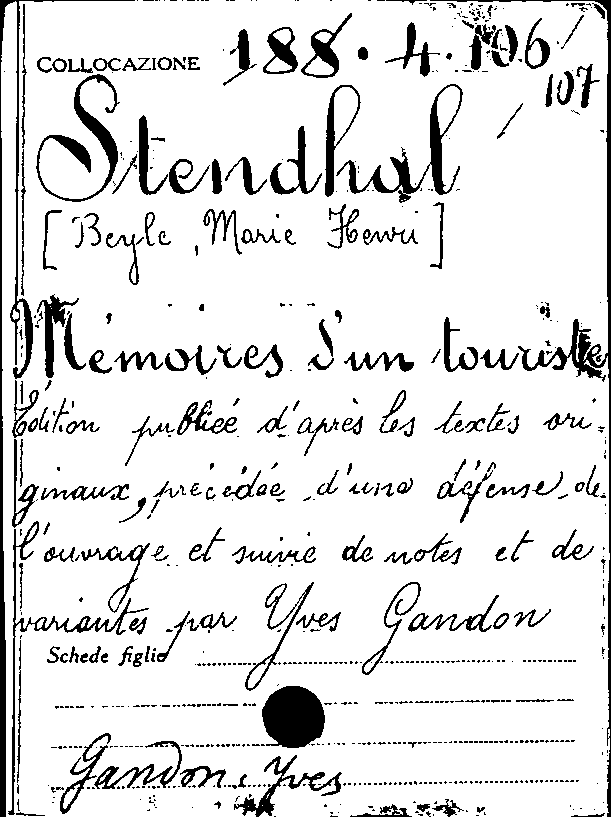 COLLOCAZIONE 188.4.106/
/107
Stendhal
[Beyle, Marie Henri]
Mémoires d'un touriste
Édition publiée d'après les textes ori-
ginaux, précédée d'une défense de
l'ouvrage et suivie de notes et de
variantes par Yves Gandon
Schede figlie
Gandon, Yves